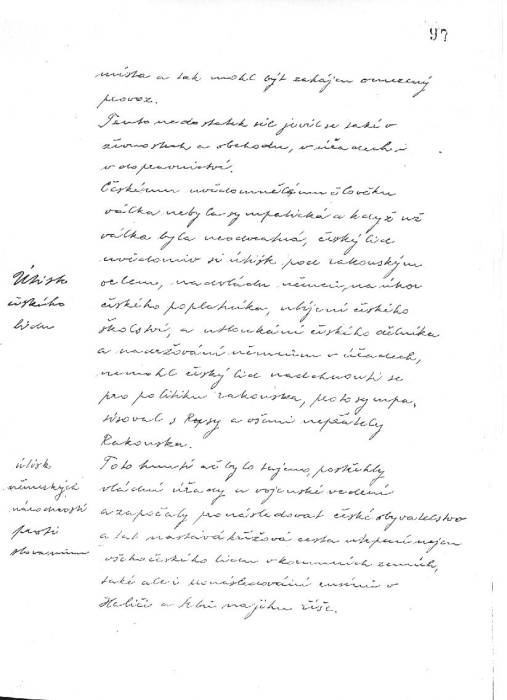 97
místa a tak mohl být zahájen omezený
provoz.
Tento nedostatek sil jevil se také v
živnostech a obchodu, v úřadech i
v dopravnictví.
Českému uvědomnělému člověku
válka nebyla sympatická a když už
válka byla neodvratná, český lid
uvědomiv si útisk pod rakouským
orlem, nadvládu němců, na úkor
českého poplatníka, ubíjení českého
školství, a utloukání českého dělníka
a nadržování němcům v úřadech,
nemohl český lid nadchnouti se
pro politiku rakouska, proto sympa-
tisoval s Rusy a všemi nepřátely
Rakouska.
Toto hnutí ač bylo tajeno, postřehly
vládní úřady a vojenské vedení
a započaly pronásledovat české obyvatelstvo
a tak nastává křížová cesta utrpení nejen
všeho českého lidu v korunních zemích,
také ale i pronásledování rusínů v
Haliči a Srbů na jihu říše.
Útisk
českého
lidu
útisk
německých
národností
proti
slovanům